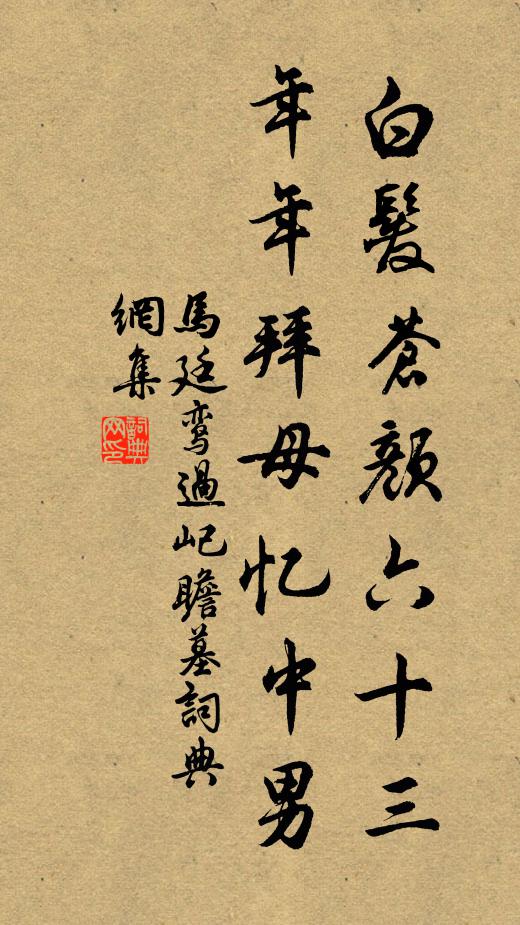 白髮蒼顏六十三
年年拜母忆中男
馬廷鸾過屺瞻墓詞典
網集
詞典
网印